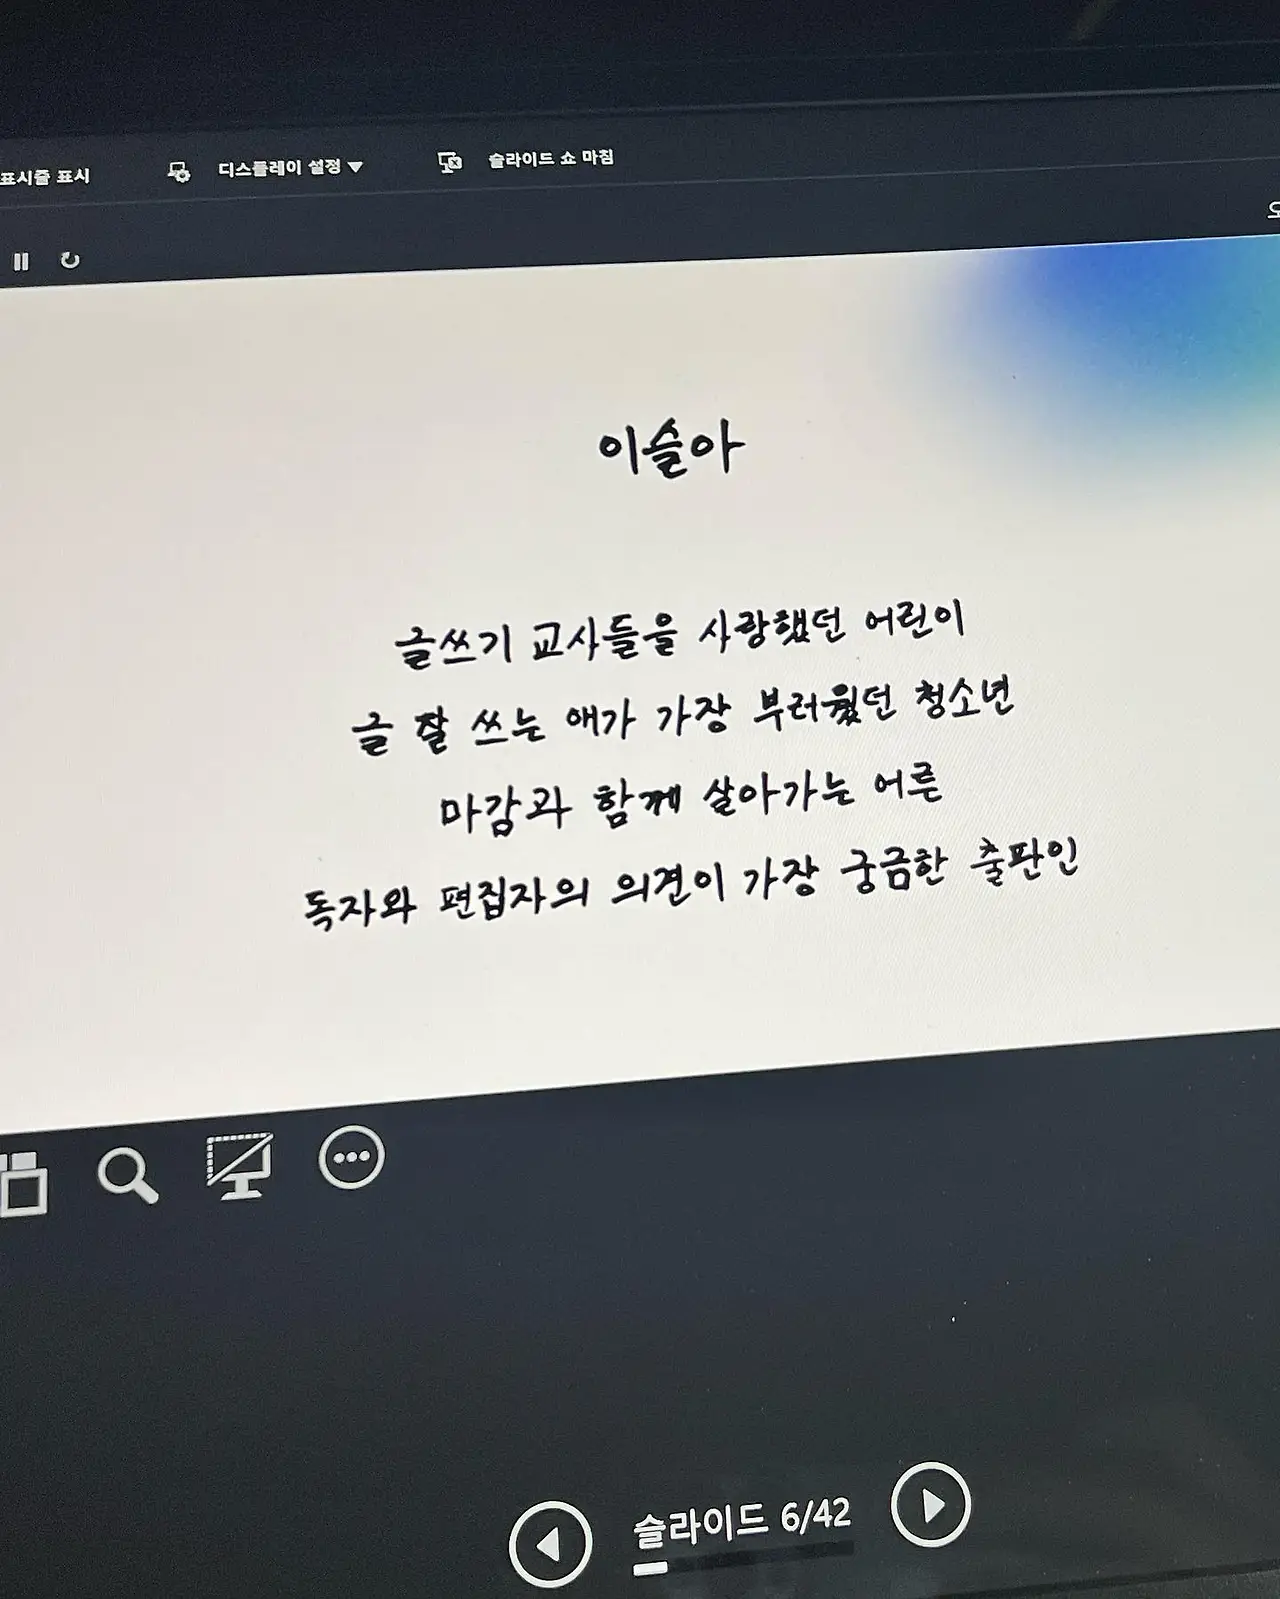 표시줄 표시 디스플레이 설정 ▼ 슬라이드 쇼 마침
이슬아
글쓰기 교사들을 사랑했던 어린이
글 잘 쓰는 애가 가장 부러웠던 청소년
마감과 함께 살아가는 어른
독자와 편집자의 의견이 가장 궁금한 출판인
슬라이드 6/42